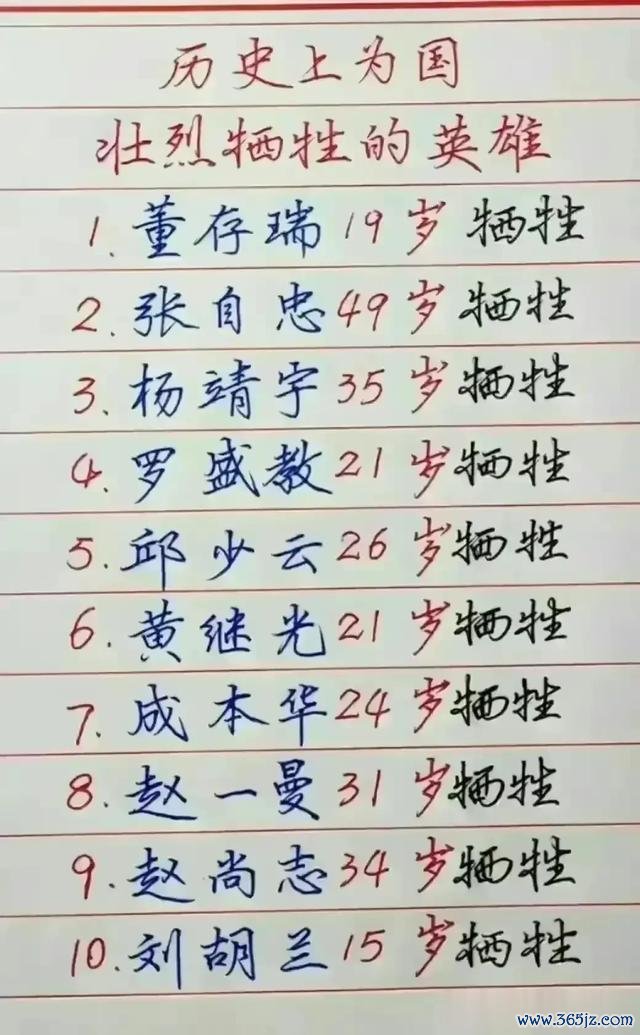 历史上为国
壮烈牺牲的英雄
1.董存瑞19岁牺牲
2.张自忠49岁牺牲
3.杨靖宇35岁牺牲
4.罗盛教21岁牺牲
5.邱少云26岁牺牲
6.黄继光21岁牺牲
7.成本华24岁牺牲
8.赵一曼31岁牺牲
9.赵尚志34岁牺牲
10.刘胡兰15岁牺牲
www.365jz.com